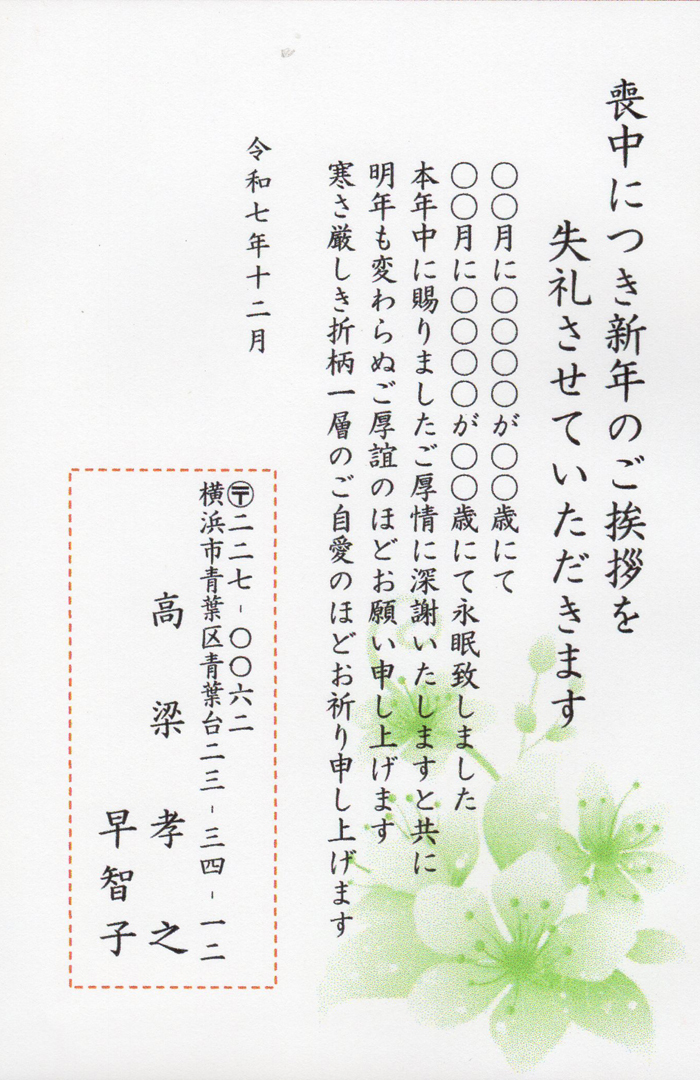 喪中につき新年のご挨拶を
失礼させていただきます
〇〇月に〇〇〇〇が〇〇歳にて
〇〇月に〇〇〇〇が〇〇歳にて永眠致しました
本年中に賜りましたご厚情に深謝いたしますと共に
明年も変わらぬご厚誼のほどお願い申し上げます
寒さ厳しき折柄一層のご自愛のほどお祈り申し上げます
令和七年十二月
〒二二七-〇〇六二
横浜市青葉区青葉台二三-三四-一二
高梁孝之
早智子